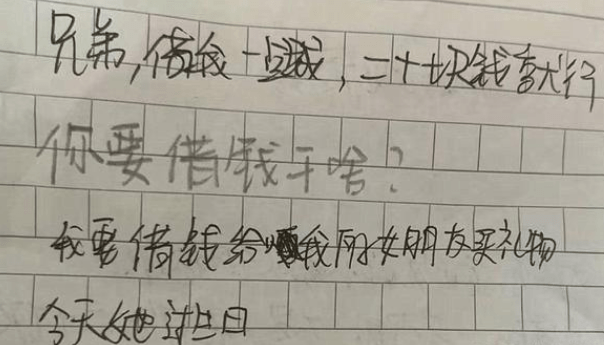 兄弟,借我一点钱,二十块钱就行
你要借钱干啥?
我要借钱给我的女朋友买礼物
今天她过生日